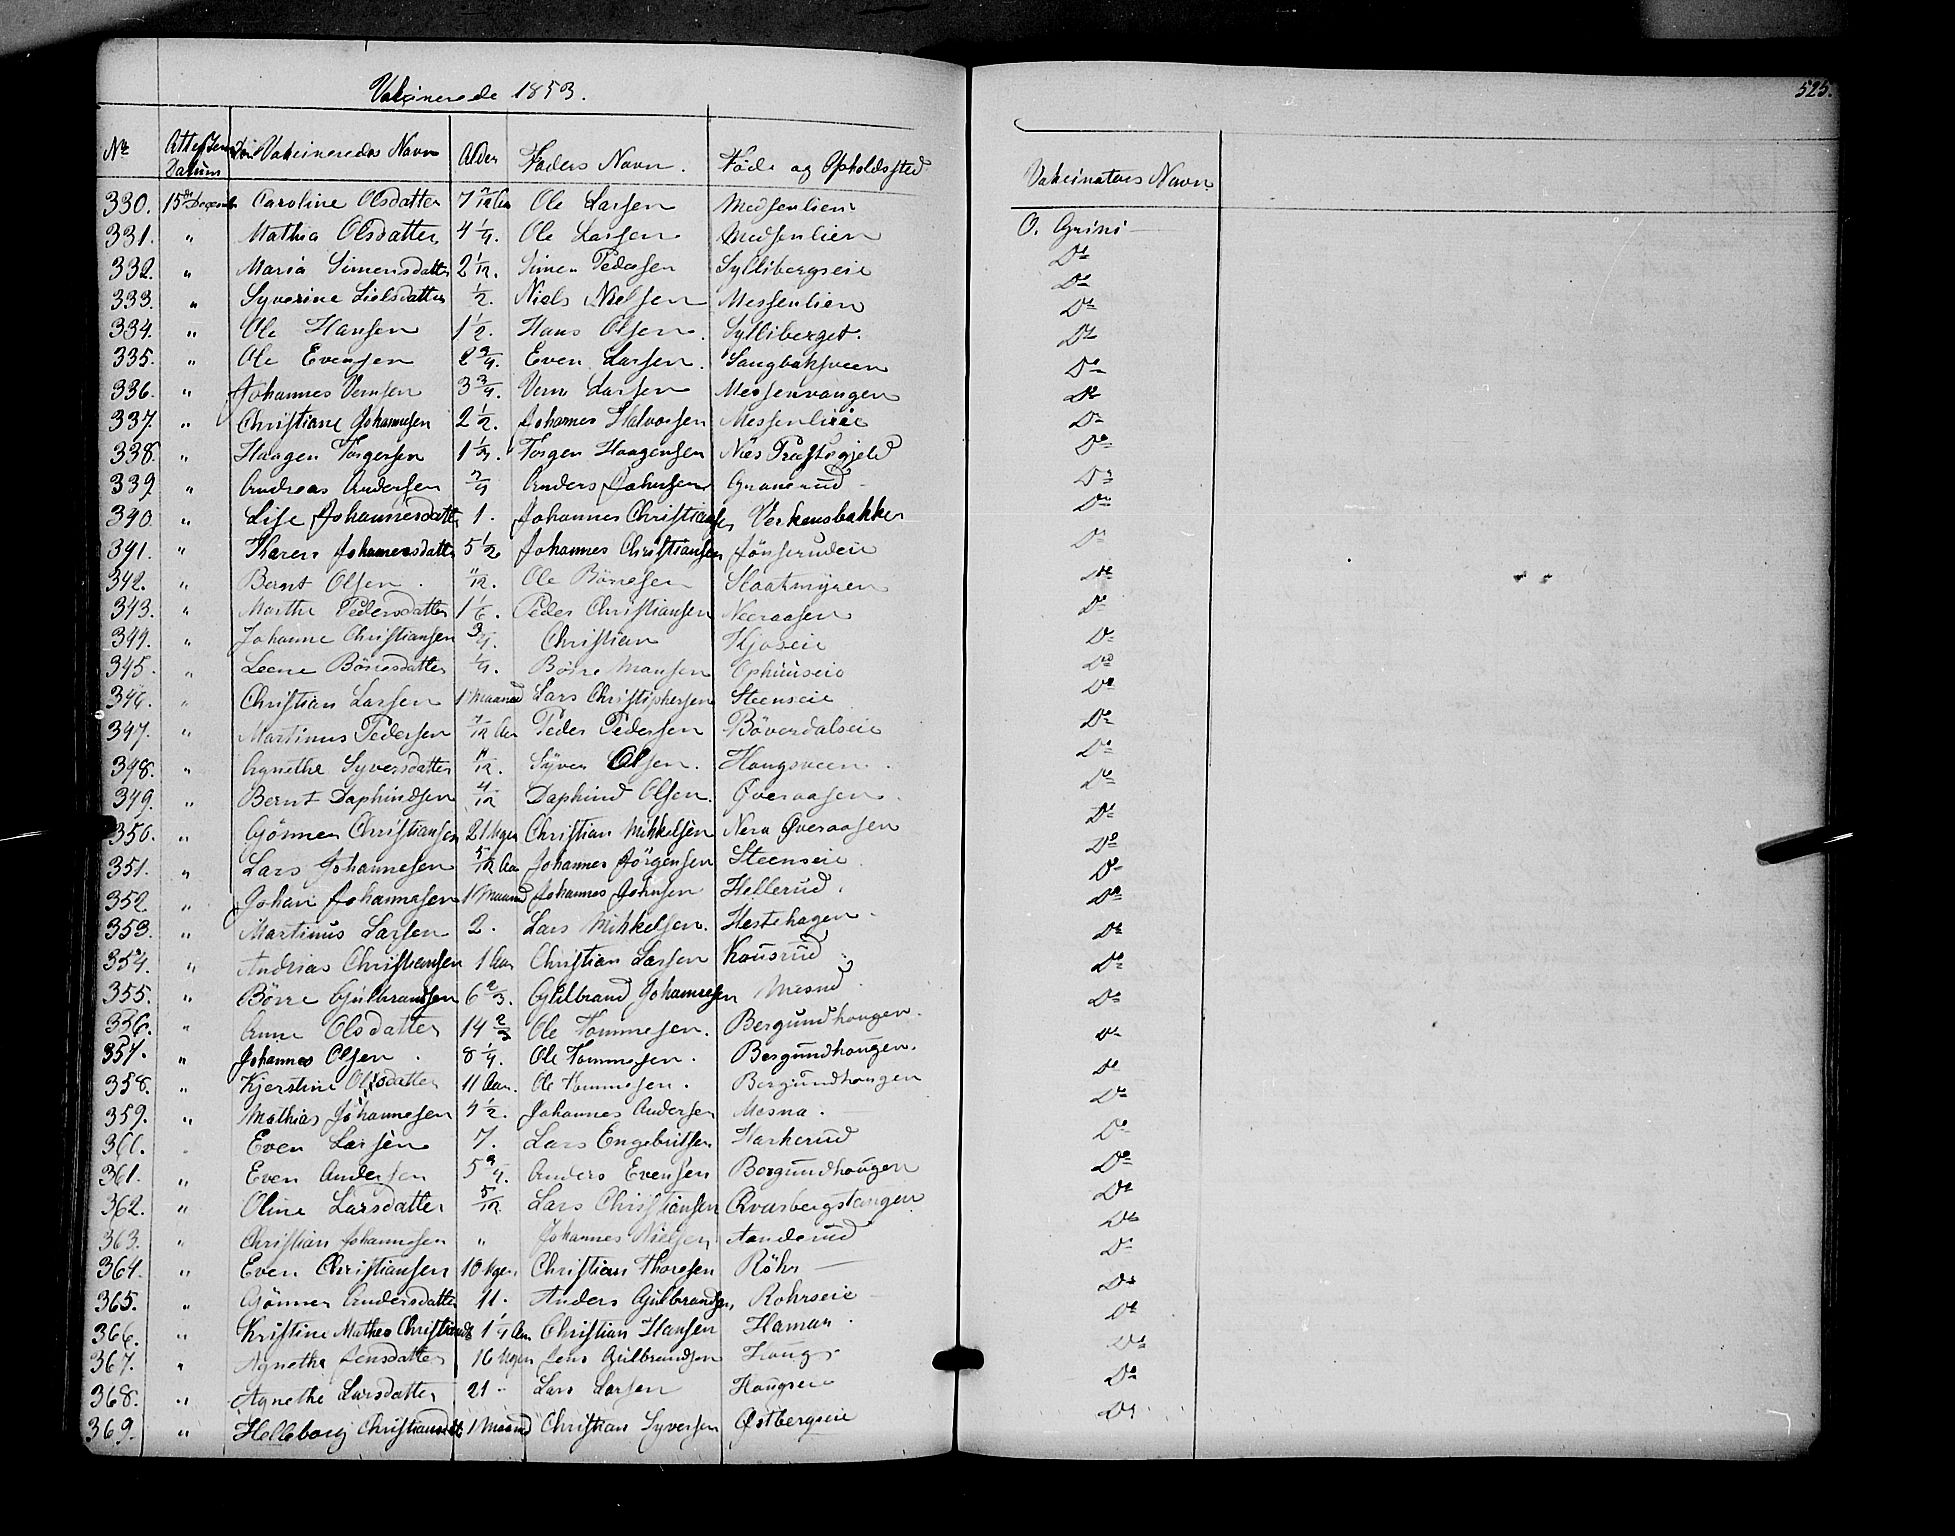 Vakcinerede 1853.
525.
No Attestens Datum De Vakcineredes Navn Alder Faders Navn. Föde og Opholdssted Vakcinators Navn
330. 15de December Caroline Olsdatter 7 7/12 Aar Ole Larsen Medsenlien O. Grini
331. " Mathia Olsdatter 4 1/4. Ole Larsen Medsenlien Do
332. " Maria Simensdatter 2 1/12. Simen Pedersen Syllibergseie Do
333. " Syverine Nielsdatter 1/2. Niels Nielsen Messenlien Do
334. " Ole Hansen 1 1/2. Hans Olsen. Sylliberget. Do
335. " Ole Evensen 2 3/4. Even Larsen. Saugbaksveen Do
336. " Johannes Vernsen 3 3/4. Vern Larsen Messenvangen Do
337. " Christiane Johannesen 2 1/2. Johannes Halvorsen Messenlieie Do
338. " Haagen Torgersen 1 1/4. Torger Haagensen Næs Præstegjeld Do
339 " Andreas Andersen 3/4 Anders Johnsen Granerud Do
340. " Lise Johannesdatter 1. Johannes Christiansen Verkensbakken Do
341. " Karen Johannesdatter 5 1/2 Johannes Christiansen Jönserudeie Do
342. " Bernt Olsen. 11/12. Ole Börresen Slaatmyren Do
343. " Marthe Pedersdatter 1 1/6. Peder Christiansen Neeraasen Do
344. " Johanne Christiansen 3/4. Christian Kjoseie Do
345. " Leene Börresdatter 1/4. Börre Mansen Ophuuseie Do
346. " Christian Larsen 1 Maaned Lars Christiphersen Steenseie Do
347. " Martinus Pedersen 7/12 Aar Peder Pedersen Böverdalseie Do
348. " Agnethe Syversdatter 11/12. Syver Olsen. Hougsveen. Do
349. " Bernt Daphindsen 4/12 Daphind Olsen. Överaasen. Do
350. " Gönner Christiansen 21 Uger Christian Mikkelsen Nera Överaasen Do
351. " Lars Johannesen 5/12 Aar Johannes Jörgensen Steenseie Do
352 " Johan Johannesen 1 Maaned Johannes Johnsen Hellerud. Do
353. " Martinus Larsen 2. Lars Mikkelsen. Hestehagen. Do
354. " Andreas Christiansen 1 Aar Christian Larsen Kausrud Do
355. " Börre Gulbrandsen 6 2/3. Gulbrand Johannesen Mesna. Do
356. " Anne Olsdatter 14 2/3 Ole Tommesen. Bergundhougen. Do
357. " Johannes Olsen. 8 1/4. Ole Tommesen. Bergundhougen. Do
358. " Kjerstine Olsdatter 11 Aar. Ole Tommesen. Bergundhougen Do
359. " Mathias Johannesen 4 1/2. Johannes Andersen Mesna. Do
360. " Even Larsen 7. Lars Engebritsen Harkerud Do
361. " Even Andersen 5 3/4. Anders Evensen Bergundhougen Do
362. " Oline Larsdatter 5/12 Lars Christiansen Qvasbergstangen Do
363. " Christian Johannesen " Johannes Nielsen Aanderud Do
364. " Even Christiansen 10 Uger Christian Thoresen Röhr Do
365. " Gönner Andersdatter 11. Anders Gulbrandsen Rohrseie Do
366. " Kristine Mathea Christiansd 1 1/4 Aar Christian Hansen Haman. Do
367. " Agnethe Jensdatter 16 Uger Jens Gulbrandsen Houg. Do
368. " Agnethe Larsdatter 21 " Lars Larsen Hougseie Do
369. " Helleborg Christiansdtt 1 Maaned Christian Syversen Östbergseie Do